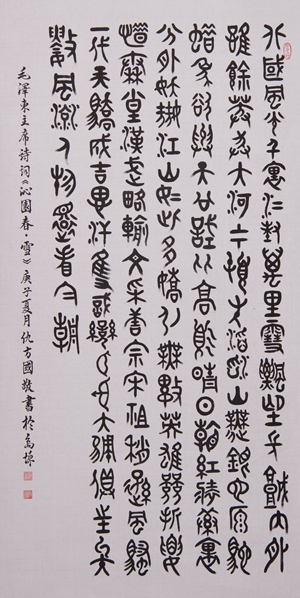 北國風光千里冰封萬里雪飄望長城內外
惟餘莽莽大河上下頓失滔滔山舞銀蛇原馳
蠟象欲與天公試比高須晴日看紅裝素裹
分外妖嬈江山如此多嬌引無數英雄競折腰
惜秦皇漢武略輸文采唐宗宋祖稍遜風騷
一代天驕成吉思汗隻識彎弓射大雕俱往矣
數風流人物還看今朝
毛澤東主席詩詞《沁園春·雪》庚子夏月仇方國敬書於高